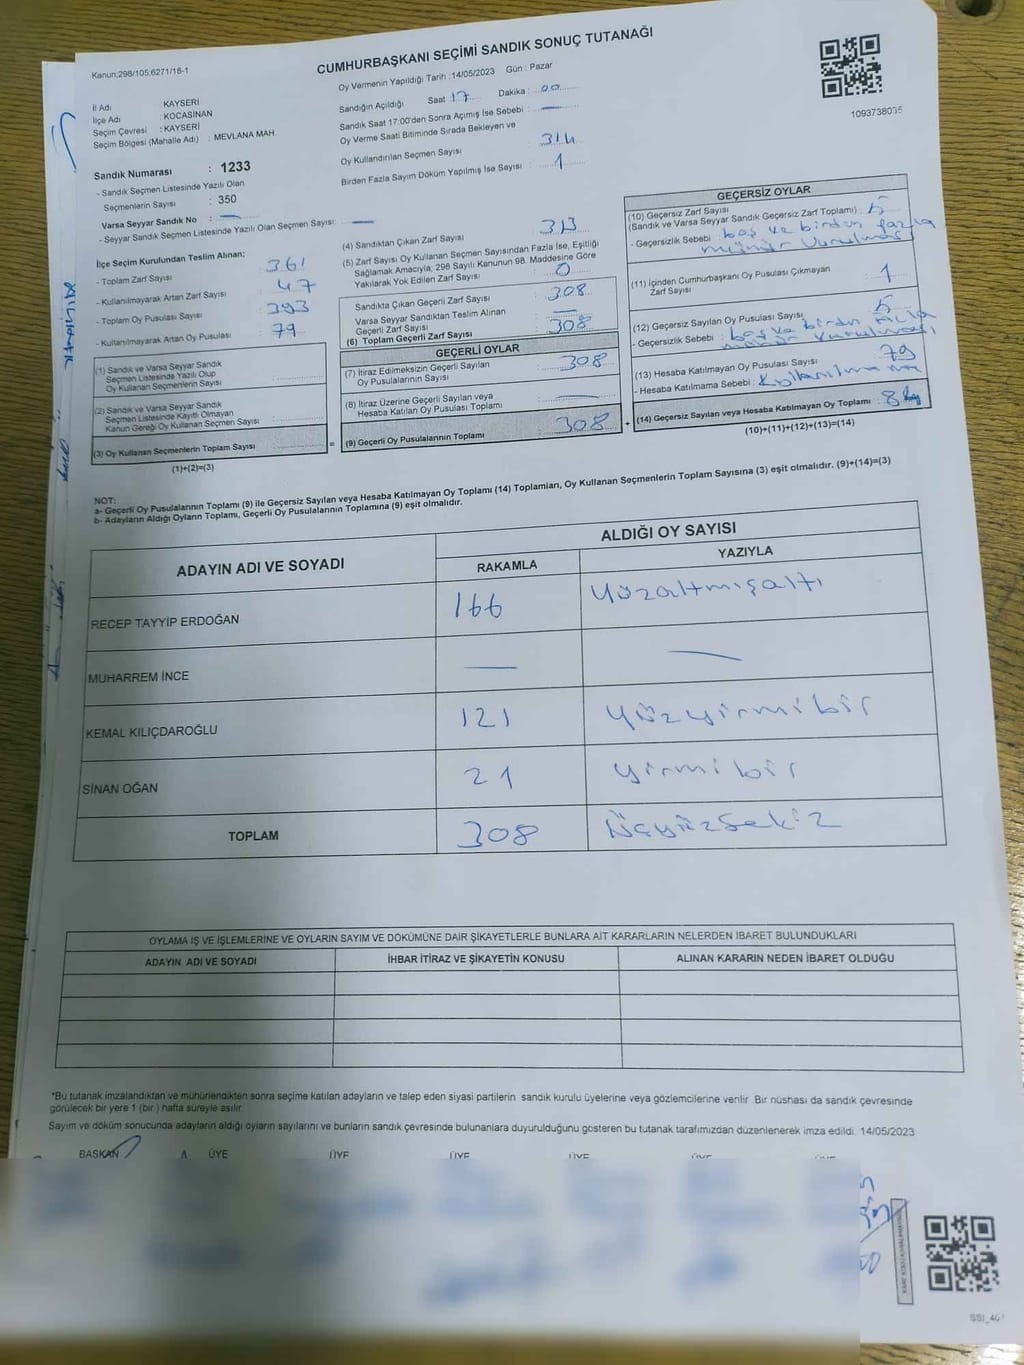 Kanun:298/105;6271/18-1
CUMHURBAŞKANI SEÇİMİ SANDIK SONUÇ TUTANAĞI
İl Adı KAYSERİ
İlçe Adı KOCASİNAN
Seçim Çevresi : KAYSERİ
Seçim Bölgesi (Mahalle Adı) : MEVLANA MAH.
Sandık Numarası : 1233
- Sandık Seçmen Listesinde Yazılı Olan
Seçmenlerin Sayısı : 350
Varsa Seyyar Sandık No : —
- Seyyar Sandık Seçmen Listesinde Yazılı Olan Seçmen Sayısı: —
Oy Vermenin Yapıldığı Tarih :14/05/2023 Gün : Pazar
Sandığın Açıldığı Saat :17 Dakika : 00
Sandık Saat 17:00'den Sonra Açımış İse Sebebi : —
Oy Verme Saati Bitiminde Sırada Bekleyen ve
Oy Kullandırılan Seçmen Sayısı : 314
Birden Fazla Sayım Döküm Yapılmış İse Sayısı : 1
1093738035
İlçe Seçim Kurulundan Teslim Alınan:
- Toplam Zarf Sayısı : 361
- Kullanılmayarak Artan Zarf Sayısı : 47
- Toplam Oy Pusulası Sayısı : 393
- Kullanılmayarak Artan Oy Pusulası : 79
(1) Sandık ve Varsa Seyyar Sandık
Seçmen Listesinde Yazılı Olup
Oy Kullanan Seçmenlerin Sayısı
(2) Sandık ve Varsa Seyyar Sandık
Seçmen Listesinde Kayıtlı Olmayan
Kanun Gereği Oy Kullanan Seçmen Sayısı
(3) Oy Kullanan Seçmenlerin Toplam Sayısı
(1)+(2)=(3)
=
(4) Sandıktan Çıkan Zarf Sayısı : 313
(5) Zarf Sayısı Oy Kullanan Seçmen Sayısından Fazla İse, Eşitliği
Sağlamak Amacıyla, 298 Sayılı Kanunun 98. Maddesine Göre
Yakılarak Yok Edilen Zarf Sayısı : 0
Sandıkta Çıkan Geçerli Zarf Sayısı : 308
Varsa Seyyar Sandıktan Teslim Alınan
Geçerli Zarf Sayısı : —
(6) Toplam Geçerli Zarf Sayısı : 308
GEÇERLİ OYLAR
(7) İtiraz Edilmeksizin Geçerli Sayılan
Oy Pusulasının Sayısı : 308
(8) İtiraz Üzerine Geçerli Sayılan veya
Hesaba Katılan Oy Pusulası Toplamı : —
(9) Geçerli Oy Pusulalarının Toplamı : 308
+
GEÇERSİZ OYLAR
(10) Geçersiz Zarf Sayısı
(Sandık ve Varsa Seyyar Sandık Geçersiz Zarf Toplamı) : 5
- Geçersizlik Sebebi : boş ve birden fazla
mühür vurulması
(11) İçinden Cumhurbaşkanı Oy Pusulası Çıkmayan
Zarf Sayısı : 1
(12) Geçersiz Sayılan Oy Pusulası Sayısı : 5
- Geçersizlik Sebebi : boş ve birden fazla
mühür vurulması
(13) Hesaba Katılmayan Oy Pusulası Sayısı : 79
- Hesaba Katılmama Sebebi : Kullanılmama
(14) Geçersiz Sayılan veya Hesaba Katılmayan Oy Toplamı :
(10)+(11)+(12)+(13)=(14)
NOT:
a- Geçerli Oy Pusulalarının Toplamı (9) ile Geçersiz Sayılan veya Hesaba Katılmayan Oy Toplamı (14) Toplamları, Oy Kullanan Seçmenlerin Toplam Sayısına (3) eşit olmalıdır. (9)+(14)=(3)
b- Adayların Aldığı Oyların Toplamı, Geçerli Oy Pusulalarının Toplamına (9) eşit olmalıdır.
ADAYIN ADI VE SOYADI
ALDIĞI OY SAYISI
RAKAMLA YAZIYLA
RECEP TAYYİP ERDOĞAN 166 Yüzaltmışaltı
MUHARREM İNCE — —
KEMAL KILIÇDAROĞLU 121 yüzyirmibir
SİNAN OĞAN 21 yirmibir
TOPLAM 308 Üçyüzsekiz
OYLAMA İŞ VE İŞLEMLERİNE VE OYLARIN SAYIM VE DÖKÜMÜNE DAİR ŞİKAYETLERLE BUNLARA AİT KARARLARIN NELERDEN İBARET BULUNDUKLARI
ADAYIN ADI VE SOYADI İHBAR İTİRAZ VE ŞİKAYETİN KONUSU ALINAN KARARIN NEDEN İBARET OLDUĞU
*Bu tutanak imzalandıktan ve mühürlendikten sonra seçime katılan adayların ve talep eden siyasi partilerin sandık kurulu üyelerine veya gözlemcilerine verilir .Bir nüshası da sandık çevresinde
görülecek bir yere 1 (bir ) hafta süreyle asılır.
Sayım ve döküm sonucunda adayların aldığı oyların sayılarını ve bunların sandık çevresinde bulunanlara duyurulduğunu gösteren bu tutanak tarafımızdan düzenlenerek imza edildi. 14/05/2023
BAŞKAN ÜYE ÜYE ÜYE ÜYE ÜYE